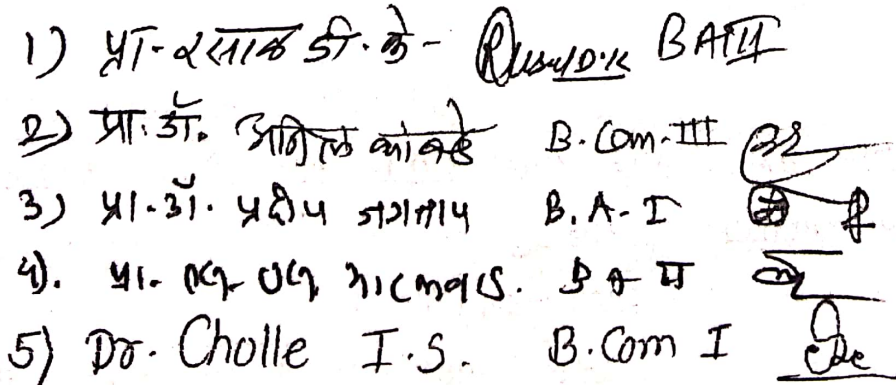 1) प्रा. रसाळ डी. के - Rasal D.K BA III
2) प्रा. डॉ. अनिल कांबळे B. Com. III
3) प्रा. डॉ. प्रदीप जगताप B. A - I
4). प्रा. एन. एन. माळवाड. B A II
5) Dr. Cholle I.S. B. Com I